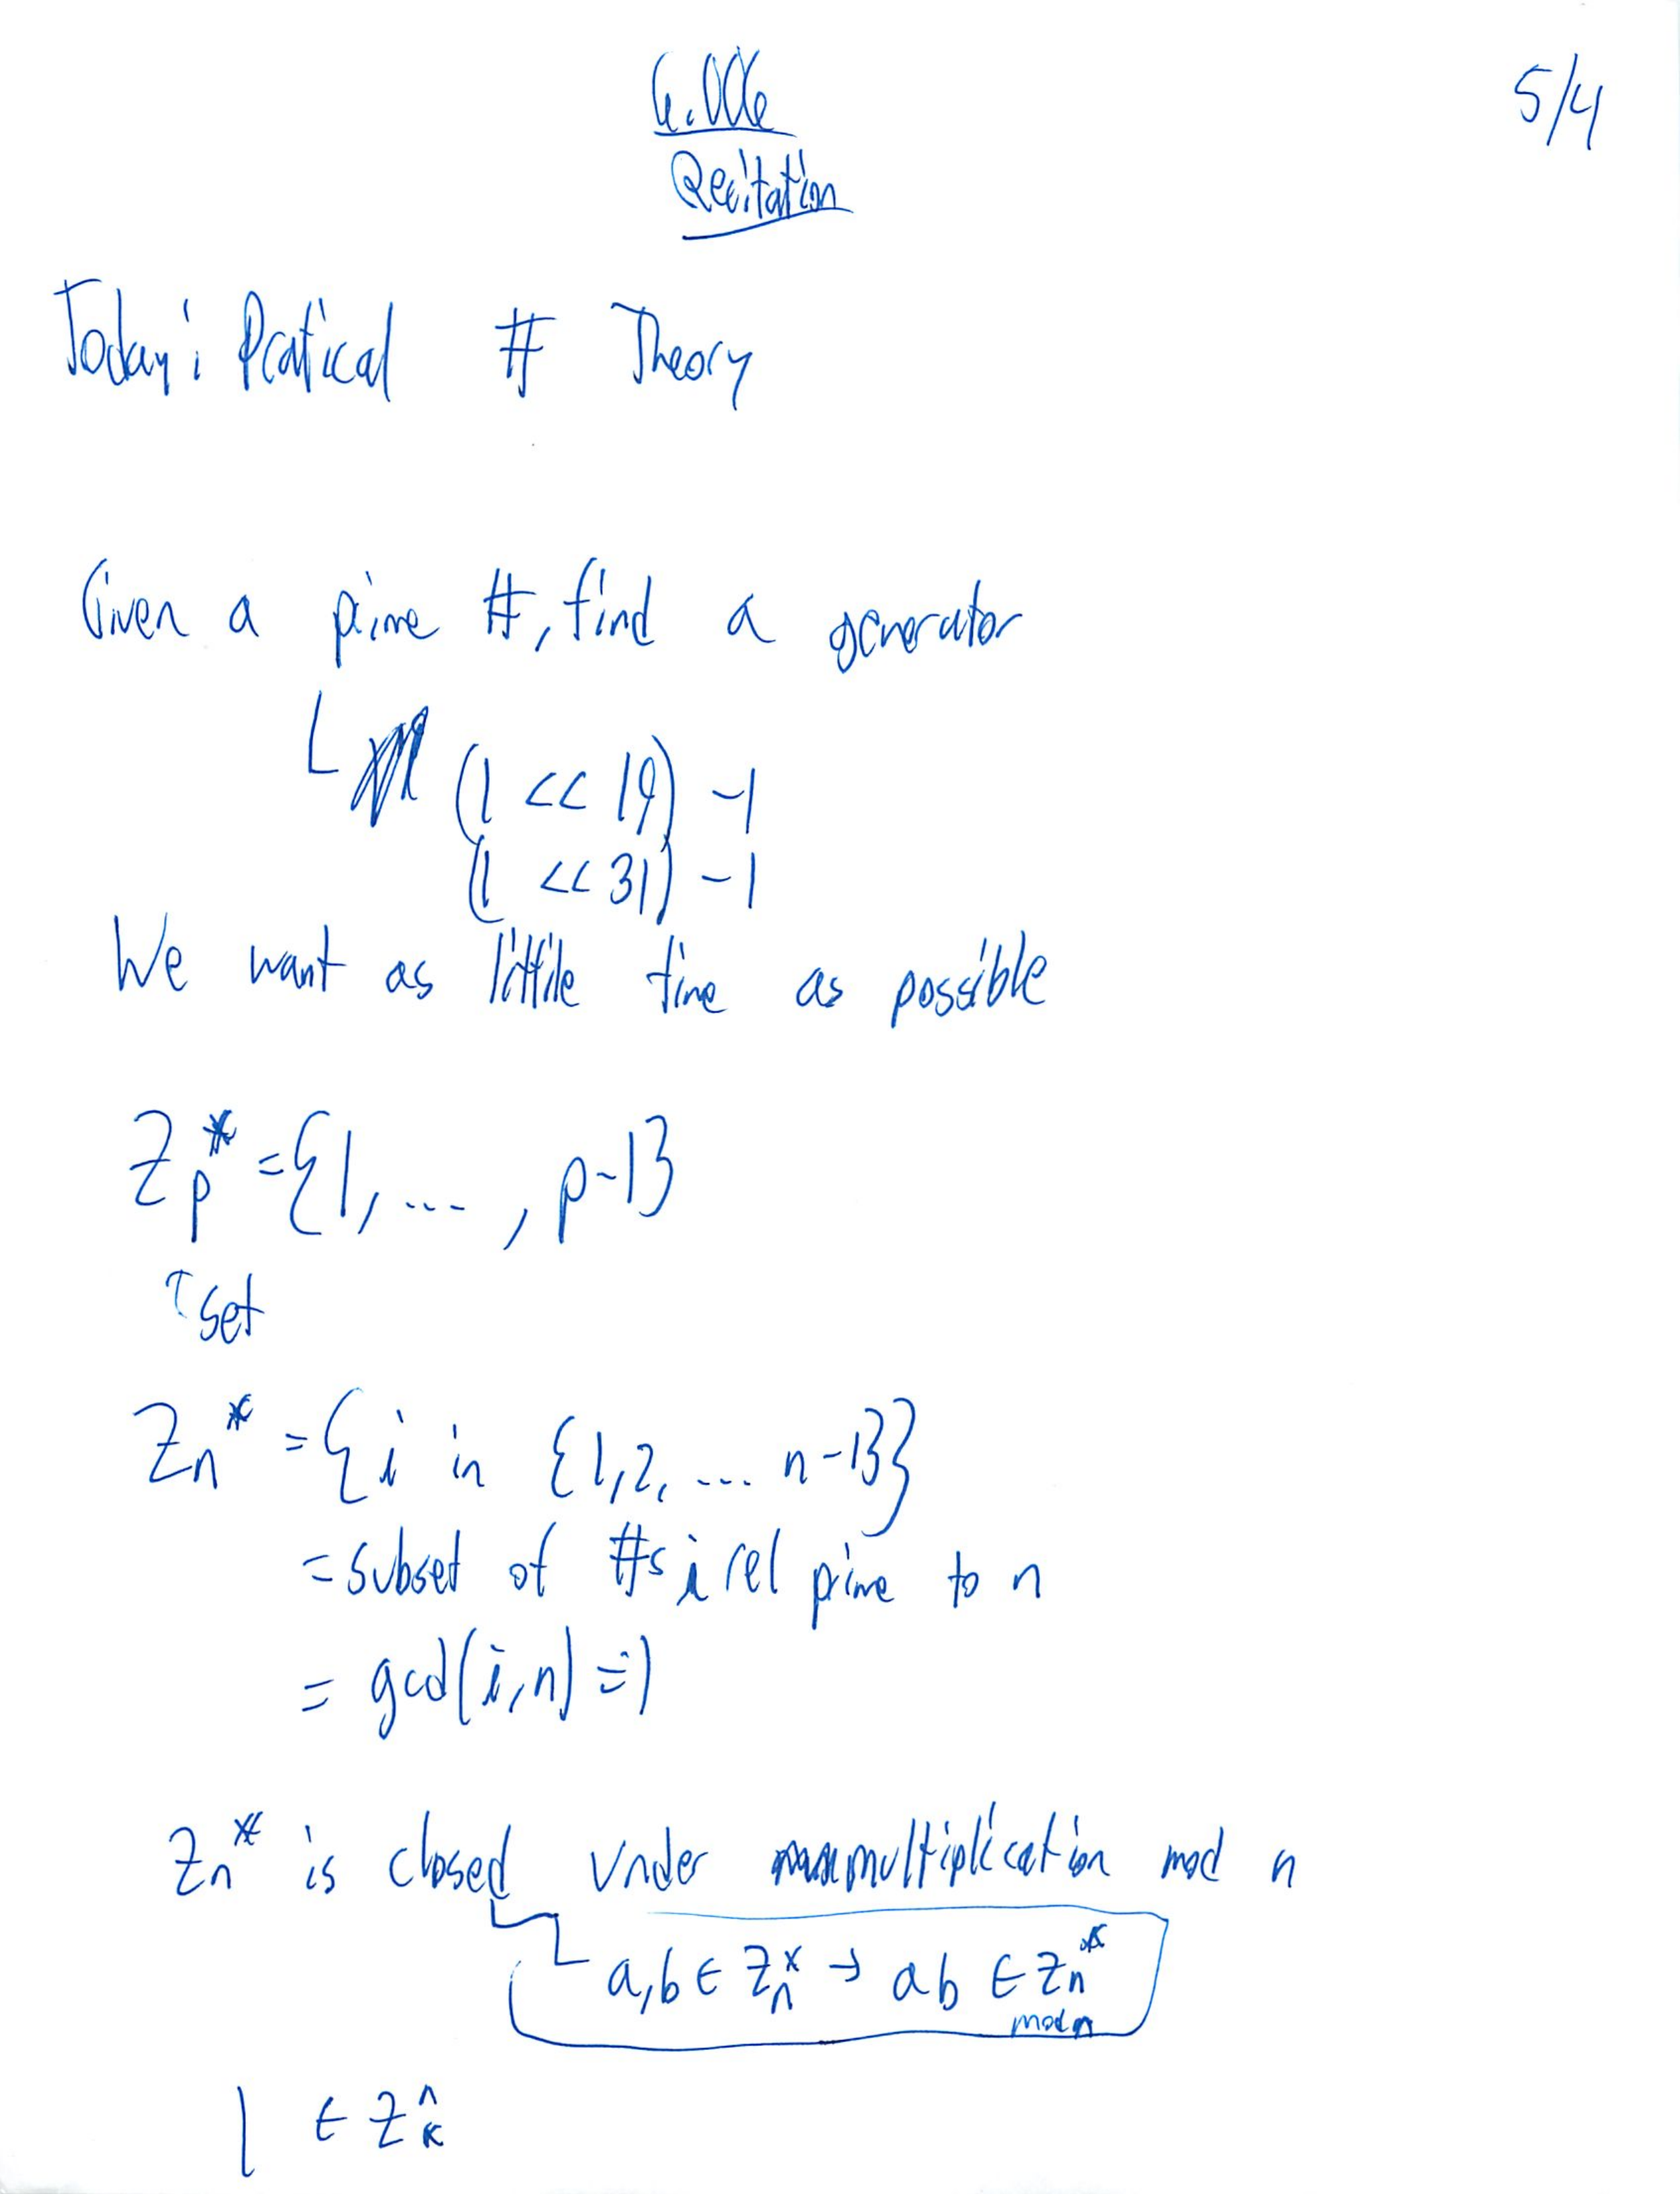 6.006
5/4
Recitation
Today: Pratical # Theory
Given a prime #, find a generator
(1 << 19) -1
(1 << 31) -1
We want as little time as possible
Zp* = {1, ... , p-1}
↑ set
Zn* = {i in {1,2, ... n-1}}
= subset of #s i rel prime to n
= gcd(i,n) = 1
Zn* is closed under multiplication mod n
a,b ∈ Zn* → ab ∈ Zn*
mod n
1 ∈ Z